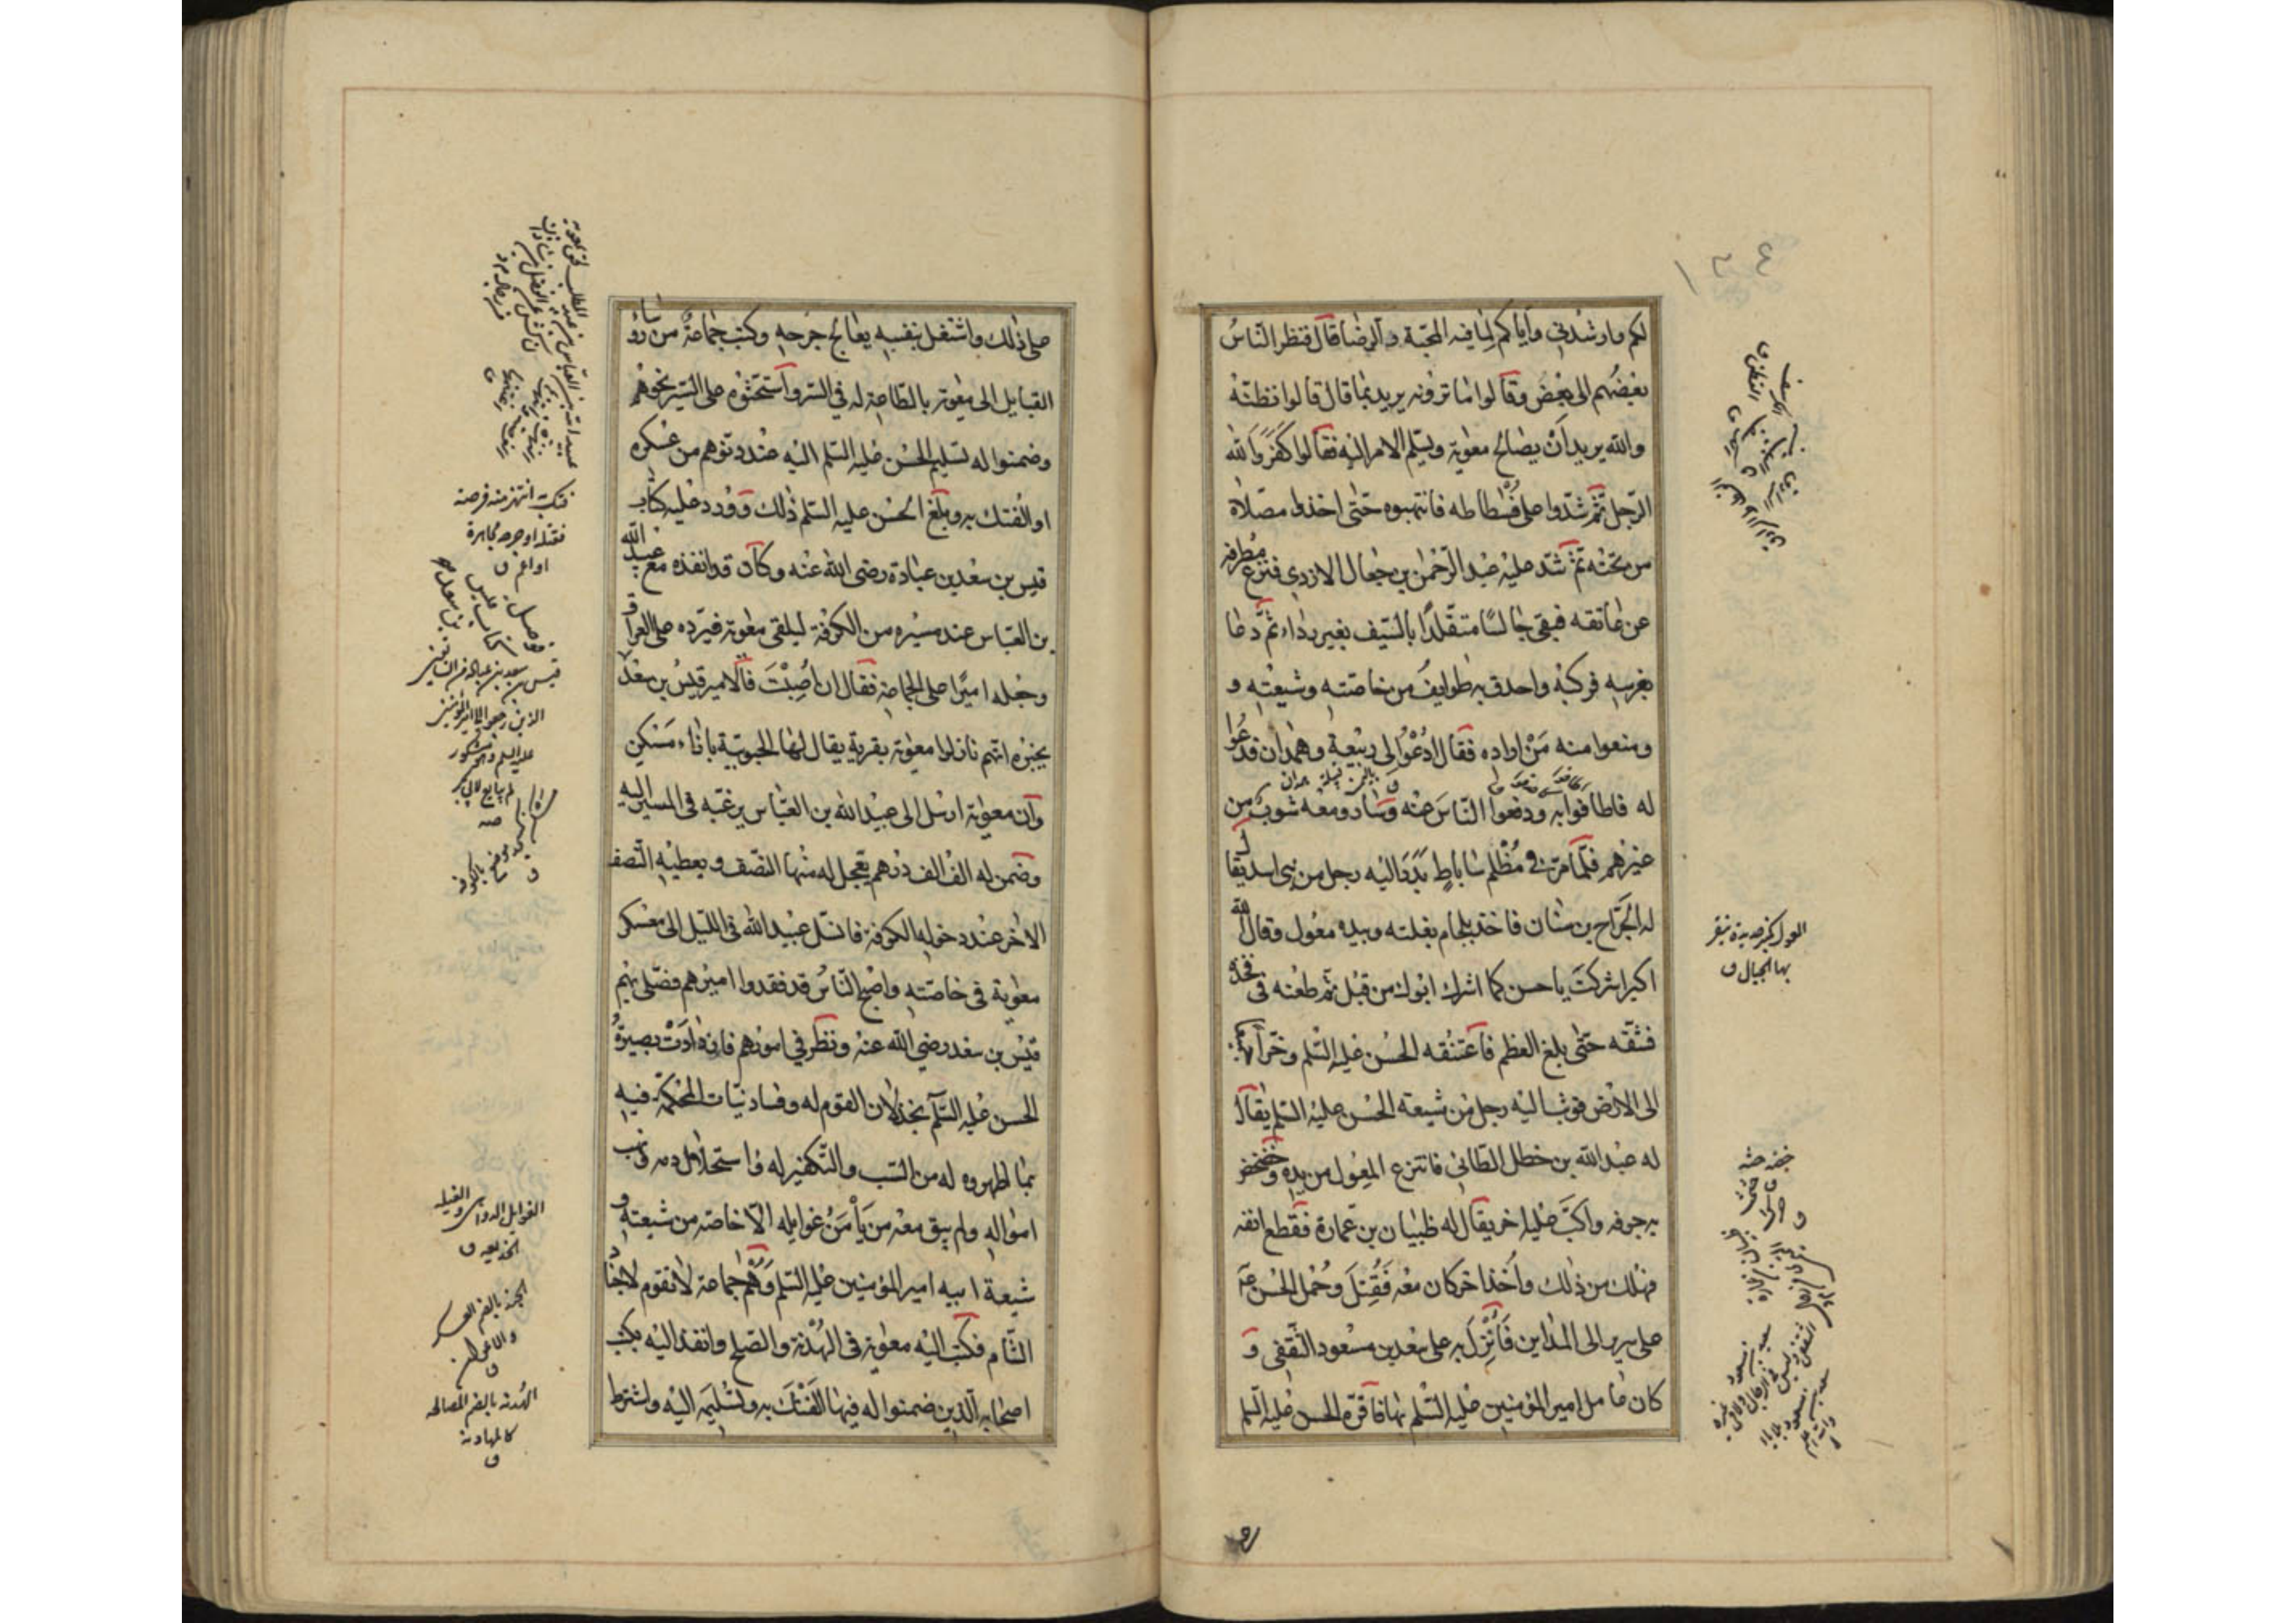 لكم وارشدني واياكم لما فيه المحبة والرضا قال فنظر الناس
بعضهم الى بعض وقالوا ما ترونه يريد بما قال قالوا نظنه
والله يريد ان يصالح معوية ويسلم الامر اليه فقالوا كفر والله
الرجل ثم شدوا على فسطاطه فانتهبوه حتى اخذوا مصلاه
من تحته ثم شد عليه عبد الرحمن بن جعال الازدي فنزع مطرفه
عن عاتقه فبقي جالسا متقلدا بالسيف بغير رداء ثم دعا
بفرسه فركبه واحدق به طوايف من خاصته وشيعته و
ومنعوا منه من اراده فقال ادعوا الى ربيعة وهمدان فدعوا
له فاطافوا به ودفعوا الناس عنه وسار ومعه شوب من
غيرهم فلما مر في مظلم ساباط بدر اليه رجل من بني اسد يقال
له الجراح بن سنان فاخذ بلجام بغلته وبيده معول وقال الله
اكبر اشركت يا حسن كما اشرك ابوك من قبل ثم طعنه في فخذه
فشقه حتى بلغ العظم فاعتنقه الحسن عليه السلم وخرا جميعا
الى الارض فوثب اليه رجل من شيعة الحسن عليه السلم يقال
له عبد الله بن خطل الطائي فانتزع المعول من يده وخضخض
به جوفه واكب عليه اخر يقال له ظبيان بن عمارة فقطع انفه
فهلك من ذلك واخذ اخر كان معه فقتل وحمل الحسن عه
على سرير الى المداين فانزل به على سعد بن مسعود الثقفي و
كان عامل امير المؤمنين عليه السلم بها فاقره الحسن عليه السلم
المعول كمنبر حديدة ينقر
بها الجبال ق
على ذلك واشتغل بنفسه يعالج جرحه وكتب جماعة من رؤساء
القبايل الى معوية بالطاعة له في السر واستحثوه على السير نحوهم
وضمنوا له تسليم الحسن عليه السلم اليه عند دنوهم من عسكره
او الفتك به وبلغ الحسن عليه السلم ذلك وورد عليه كتاب
قيس بن سعد بن عبادة رضى الله عنه وكان قد انفذه مع عبيد الله
بن العباس عند مسيره من الكوفة ليلقى معوية فيرده على العراق
وجعله اميرا على الجماعة فقال ان اصبت فالامير قيس بن سعد
يخبره انهم نازلوا معوية بقرية يقال لها الحبوبية بازاء مسكن
وان معوية ارسل الى عبيد الله بن العباس يرغبه في المسير اليه
وضمن له الف الف درهم يعجل له منها النصف ويعطيه النصف
الاخر عند دخوله الكوفة فانسل عبيد الله في الليل الى معسكر
معوية في خاصته واصبح الناس قد فقدوا اميرهم فصلى بهم
قيس بن سعد رضي الله عنه ونظر في امورهم فازدادت بصيرة
الحسن عليه السلم بخذلان القوم له وفساد نيات المحكمة فيه
بما اظهروه له من السب والتكفير له واستحلال دمه ونهب
امواله ولم يبق معه من يأمن غوايله الا خاصة من شيعته و
شيعة ابيه امير المؤمنين عليه السلم وهم جماعة لا تقوم لاجناد
الشام فكتب اليه معوية في الهدنة والصلح وانفذ اليه بكتب
اصحابه الذين ضمنوا له فيها الفتك به وتسليمه اليه واشترط
فتك به انتهز منه فرصة
فقتله او جرحه مجاهرة
او اعم ق
قيس بن سعد بن عبادة من السابقين
الذين رجعوا الى امير المؤمنين
عليه السلم
لم يبايع لابي بكر
صه
الغوايل الدواهي والغيلة
الخديعة ق
الجند بالضم العسكر
والاعوان
ق
الهدنة بالضم المصالحة
كالمهادنة
ق